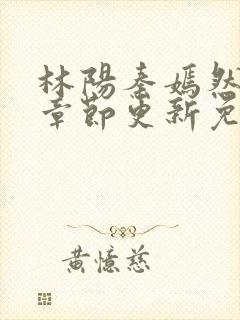 林陽秦嫣然
章節更新免
黃憶慈